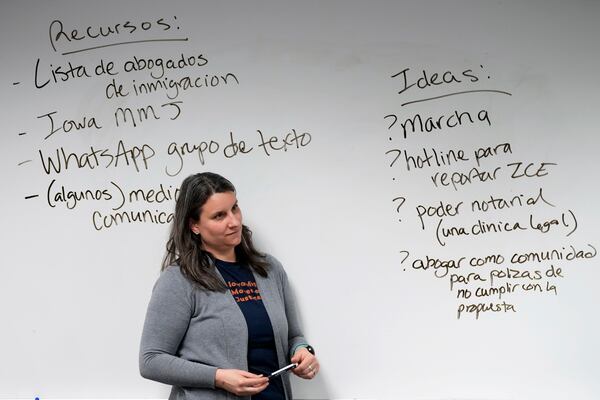 Recursos:
- Lista de abogados
de inmigracion
- Iowa MMJ
- WhatsApp grupo de texto
- (algunos) medio
comunica
Ideas:
? marcha
? hotline para
reportar ICE
? poder notarial
(una clinica legal)
? abogar como comunidad
para polzas de
no cumplir con la
propuesta
Justice